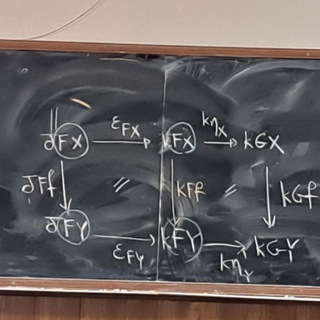 JFX ε_FX kFX kη_X kGX
JFf kFf = kGf
JFY ε_FY kFY kη_Y kGY